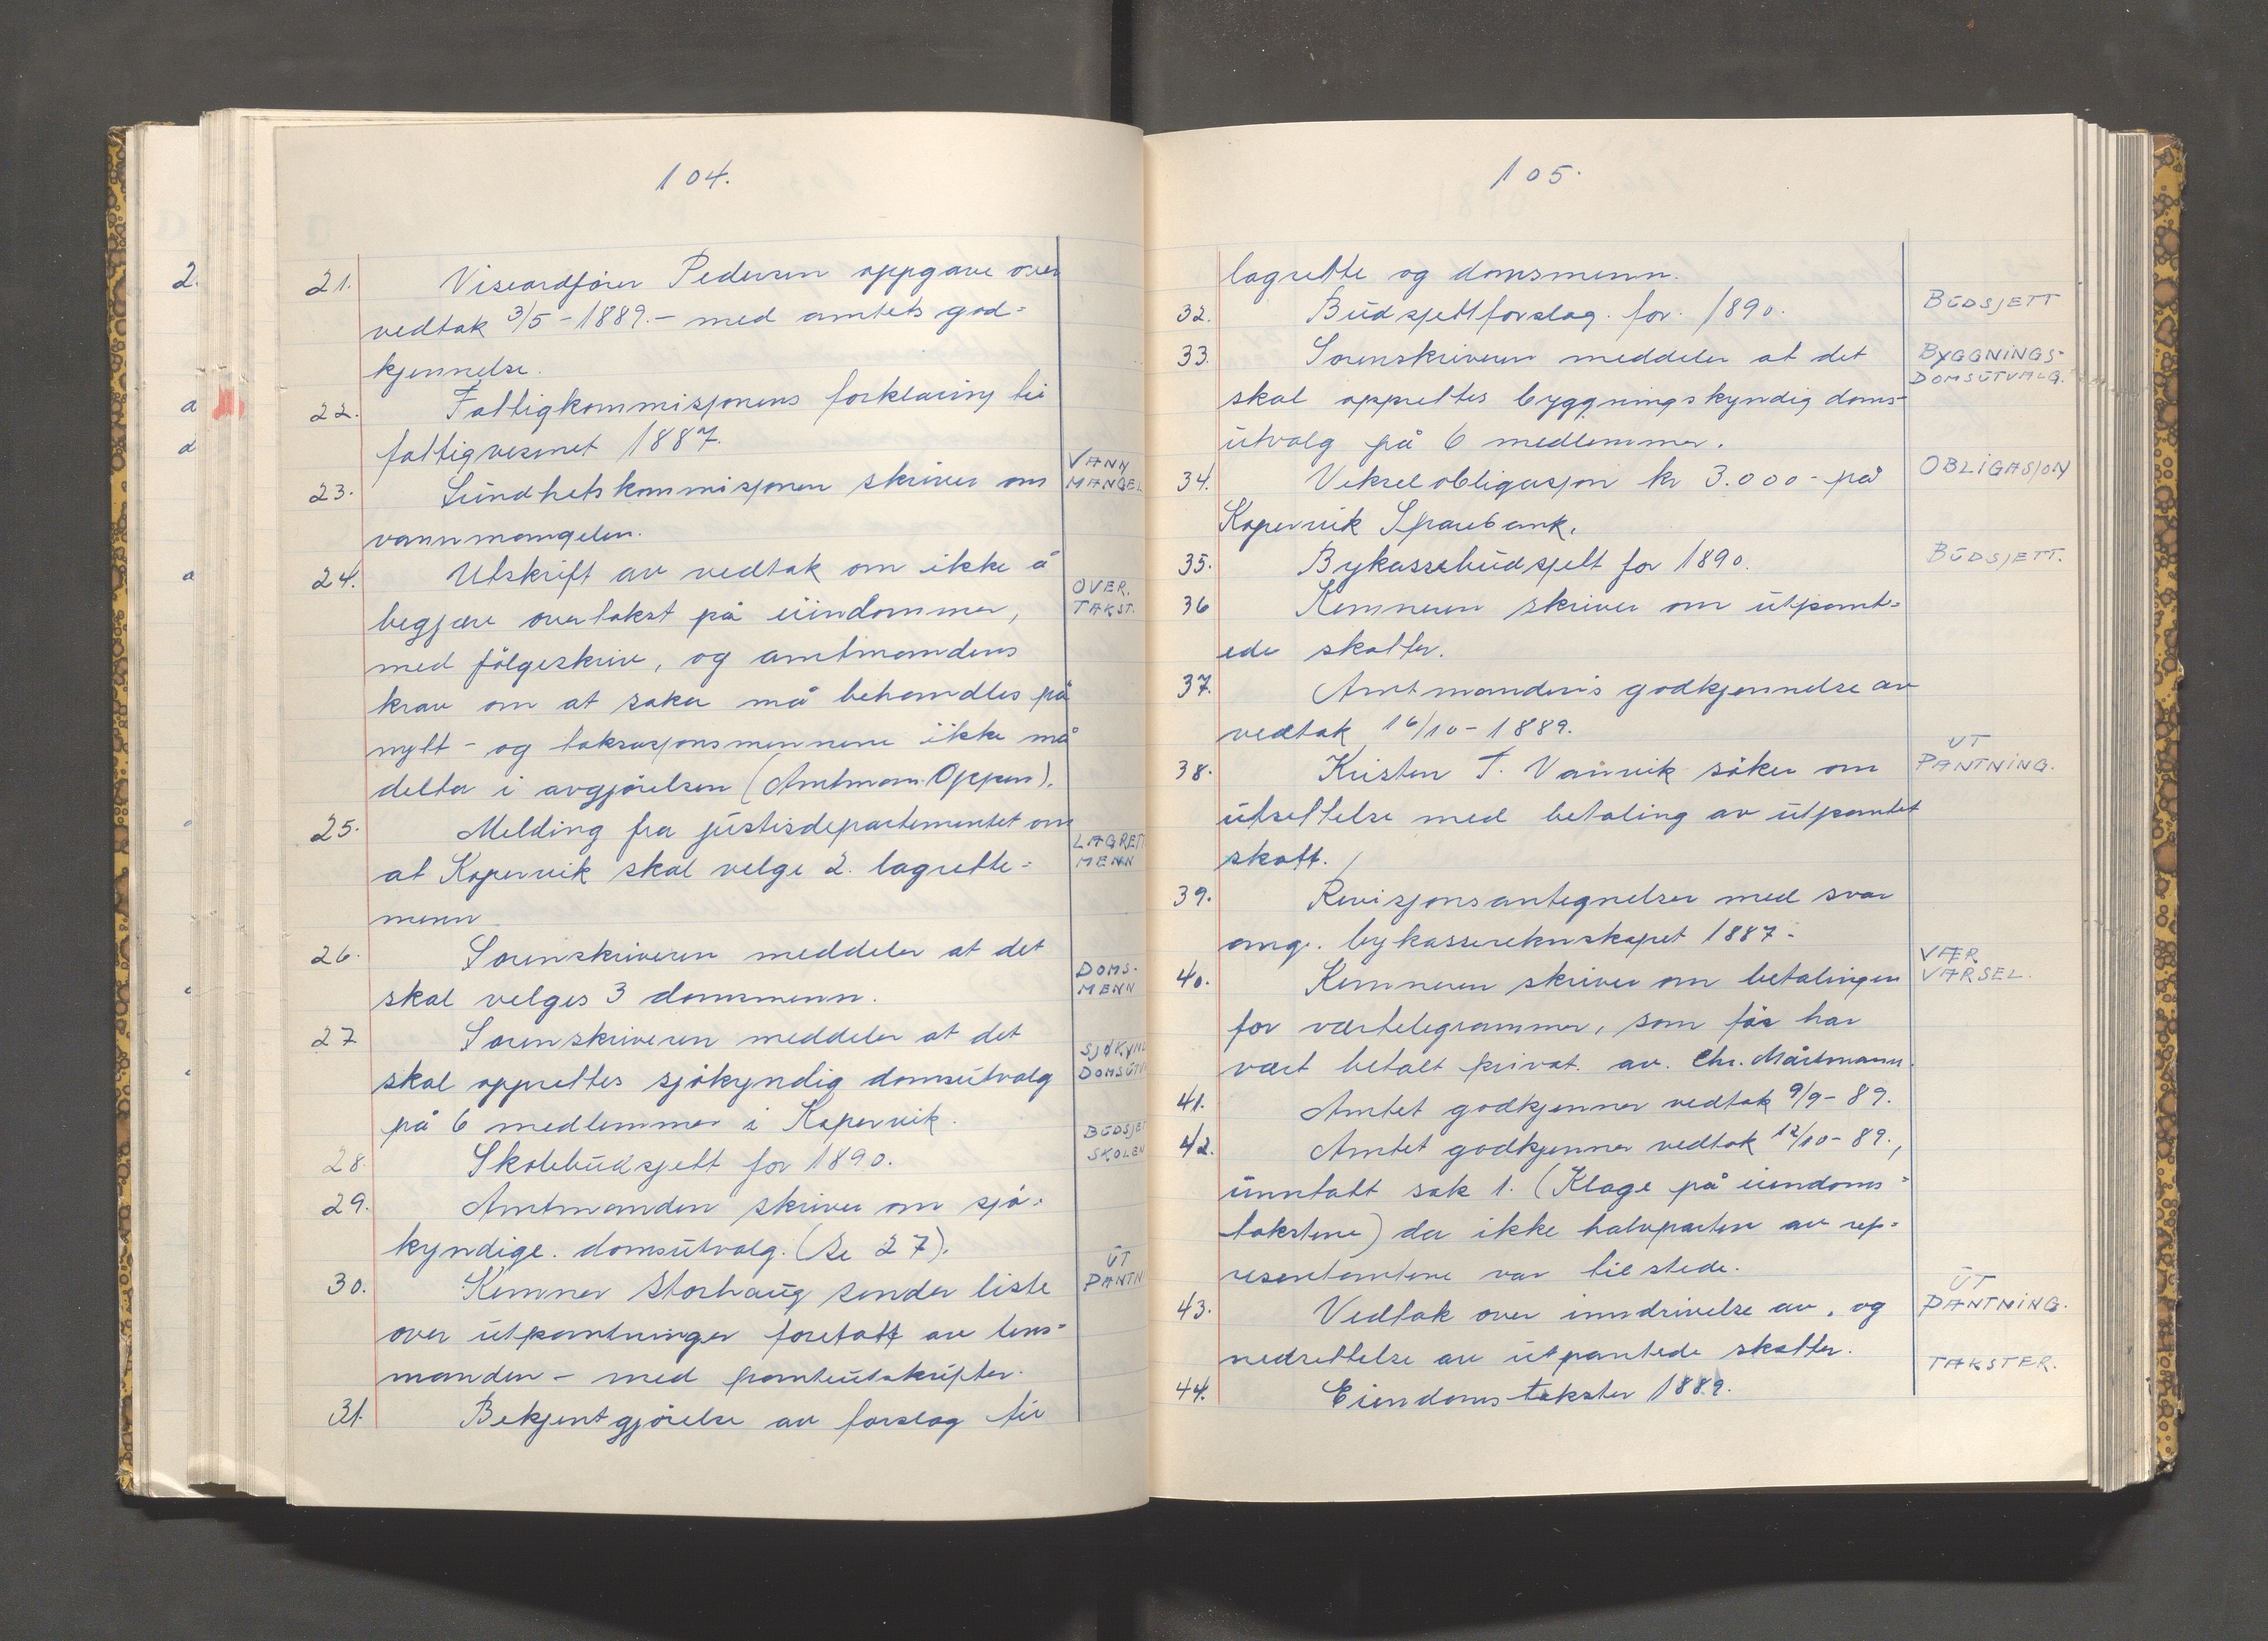 104.
21. Viseordfører Pedersen oppgave over
vedtak 3/5-1889.- med amtets god=
kjennelse.
22. Fattigkommisjonens forklaring til
fattigvesenet 1887.
23. Sundhetskommisjonen skriver om
vannmangelen.
VANN
MANGEL
24. Utskrift av vedtak om ikke å
begjære overtakst på eiendommer,
med følgeskriv, og amtmandens
krav om at saken må behandles på
nytt - og taksasjonsmennene ikke må
delta i avgjørelsen (Amtmann Oppen).
OVER.
TAKST.
25. Melding fra justisdepartementet om
at Kopervik skal velge 2. lagrette=
menn
LAGRETT
MENN
26. Sorenskriveren meddeler at det
skal velges 3 domsmenn.
DOMS-
MENN
27 Sorenskriveren meddeler at det
skal opprettes sjøkyndig domsutvalg
på 6 medlemmer i Kopervik.
SJØKYND
DOMSUTV
28. Skolebudsjett for 1890.
BUDSJET
SKOLEN
29. Amtmanden skriver om sjø=
kyndige. domsutvalg. (Se 27).
30. Kemner Storhaug sender liste
over utpantninger foretatt av lens=
manden - med panteutskrifter.
UT
PANTNI
31. Bekjentgjørelse av forslag til
105.
lagrette og domsmenn.
32. Budsjettforslag. for. 1890.
BUDSJETT
33. Sorenskriveren meddeler at det
skal opprettes bygningskyndig doms-
utvalg på 6 medlemmer.
BYGGNINGS-
DOMSUTVALG.
34. Vekselobligasjon kr 3.000- på
Kopervik Sparebank.
OBLIGASJON
35. Bykassebudsjett for 1890.
BUDSJETT.
36 Kemneren skriver om utpant=
ede skatter.
37. Amtmandens godkjennelse av
vedtak 16/10-1889.
38. Kristen T. Vannvik søker om
utsettelse med betaling av utpantet
skatt.
UT
PANTNING.
39. Revisjonsantegnelser med svar
ang. bykasseregnskapet 1887-
40. Kemneren skriver om betalingen
for værtelegrammer, som før har
vært betalt privat. av. Chr. Mårtmann.
VÆR
VARSEL.
41. Amtet godkjenner vedtak 9/9-89.
42. Amtet godkjenner vedtak 12/10-89.,
unntatt sak 1. (Klage på eiendoms=
takstene) da ikke halvparten av rep=
resentantene var tilstede.
43. Vedtak over inndrivelse av, og
nedsettelse av utpantede skatter.
UT
PANTNING.
44. Eiendomstakster 1889.
TAKSTER.